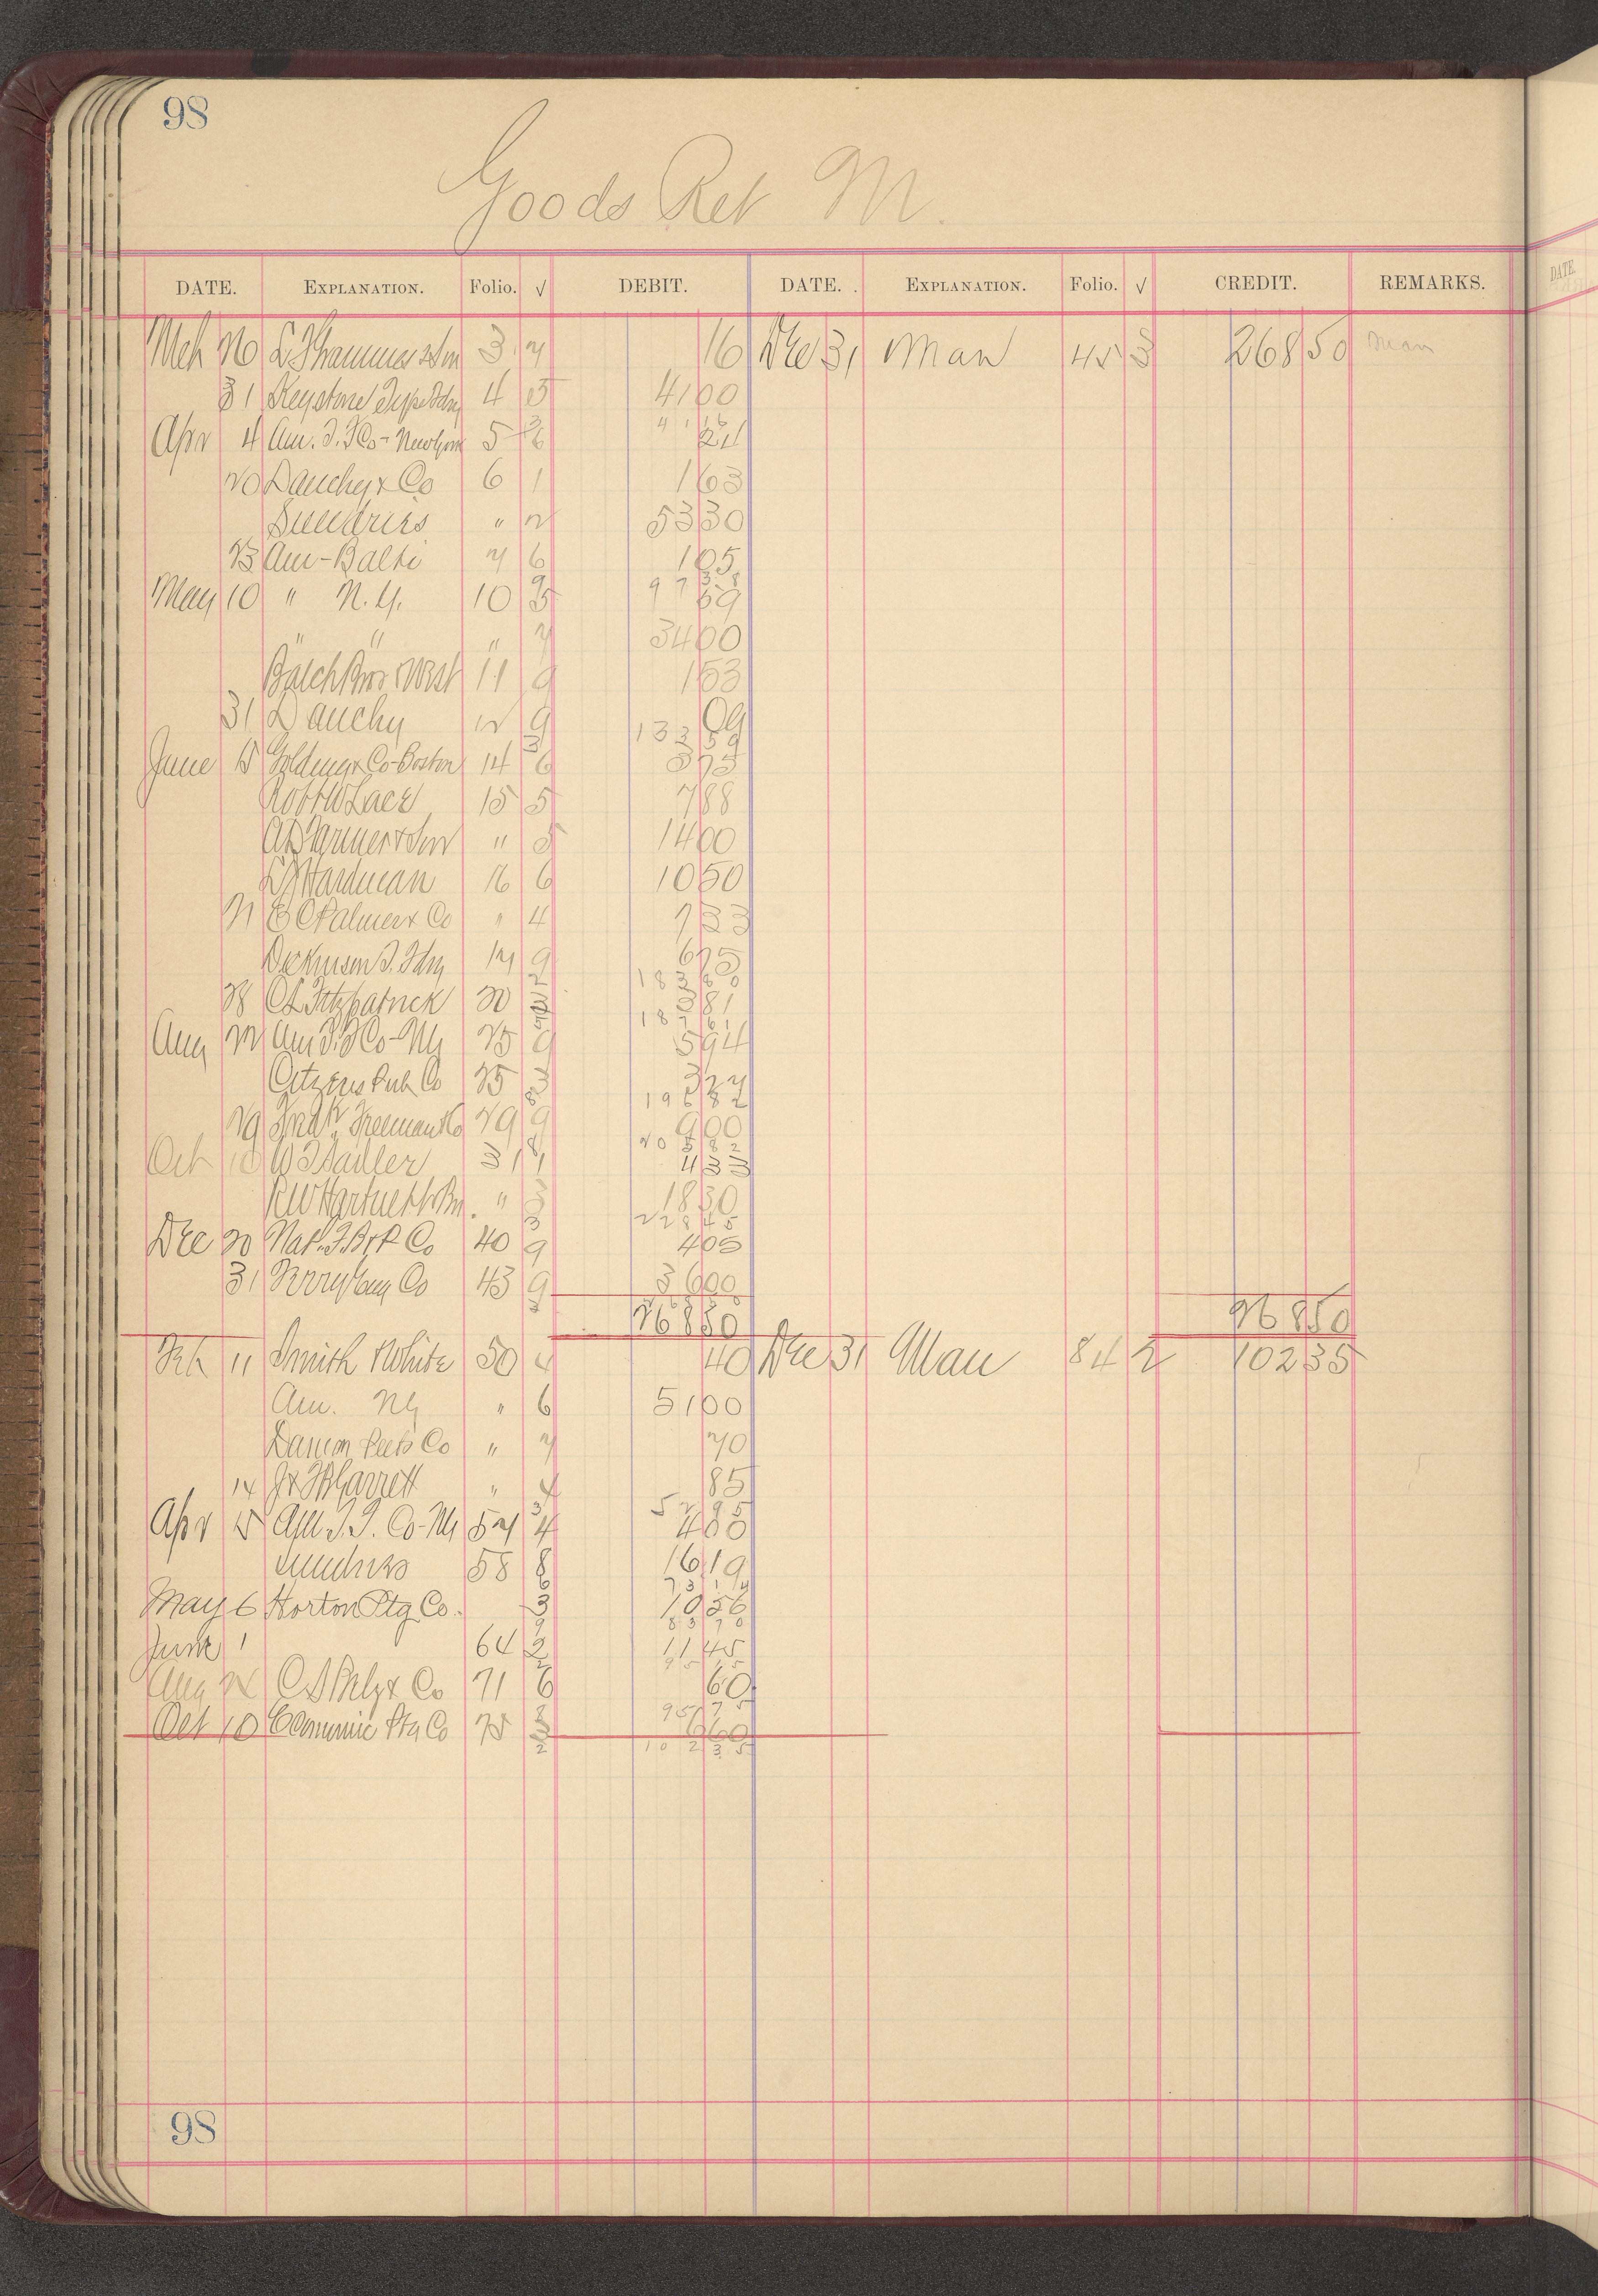 98
Goods Ret M.
DATE. EXPLANATION. Folio. √ DEBIT. DATE. EXPLANATION. Folio. √ CREDIT. REMARKS.
Mch 26 3 7 16 Dec 31 Man 45 3 268 50 Man
31 Keystone Type Fdry 4 5 41 00
Apr 4 Am. T. F Co - New York 5 21
41 16
20 Dauchy & Co 6 1 1 63
Sundries " 2 53 30
23 Am - Balti 7 6 1 05
May 10 " N.Y. 10 5 69
" " " 7 34 00
Balch Bros West 11 9 1 53
31 Dauchy 12 9 09
June 15 Golding & Co - Boston 14 6 3 75
15 5 7 88
" 5 14 00
Hardman 16 6 10 50
21 E C Palmer & Co " 4 7 33
Dickinson T. Fdry 17 9 6 75
28 C L Fitzpatrick 20 3 81
Aug 22 Am T. F Co - NY 25 9 5 94
Citizens Pub Co 25 3 27
29 Freeman Co 29 9 9 00
Oct 10 W Sadler 31 1 4 33
" 18 30
228 45
Dec 20 Nat. Co 40 9 4 05
31 Co 43 9 36 00
268 50 268 50
Feb 11 Smith & White 50 40 Dec 31 Man 84 2 102 35
Am. NY " 6 51 00
Damon Peets Co " 7 70
14 Garrett " 4 85
52 95
Apr 15 Am T. F. Co - NY 57 4 4 05
Sundries 58 8 16 19
May 6 Horton Ptg Co. 3 10 56
June 1 64 2 11 45
Aug 71 6 60
Oct 10 Ptg Co 75 6 60
102 35
98